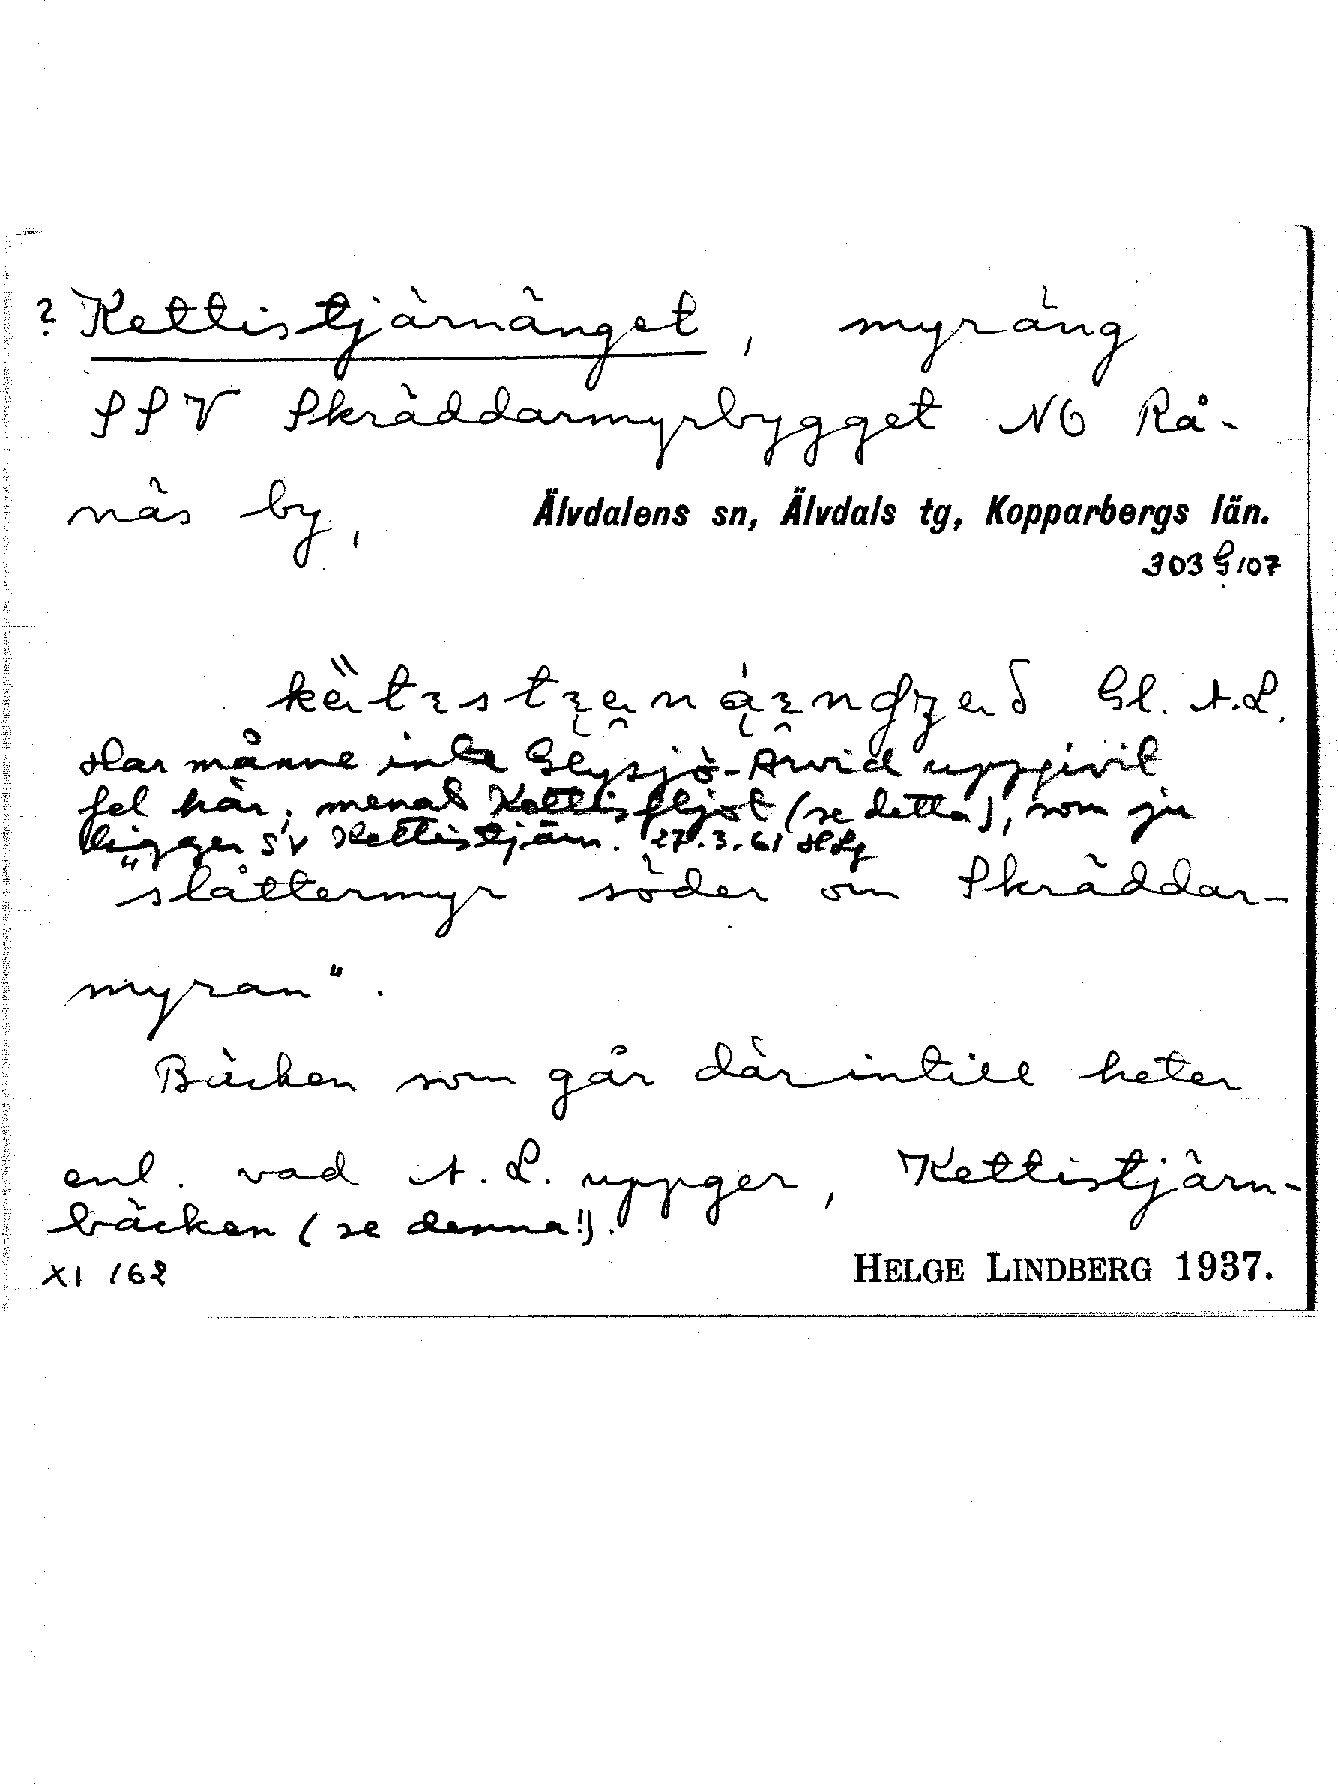 ? Kettistjärnänget, myräng
SSV Skräddarmyrbygget NO Rå-
näs by,
Älvdalens sn, Älvdals tg, Kopparbergs län.
303 G 107
Gl. A.L.
Har månne inte Glysjö-Arvid uppgivit
fel här; menat Kettisfljot (se detta), som ju
ligger SV Kettistjärn. 27.3.61 HLg
"slåttermyr söder om Skräddar-
myran".
Bäcken som går där intill heter
enl. vad A.L. uppger, Kettistjärn-
bäcken (se denna!).
XI /62
HELGE LINDBERG 1937.